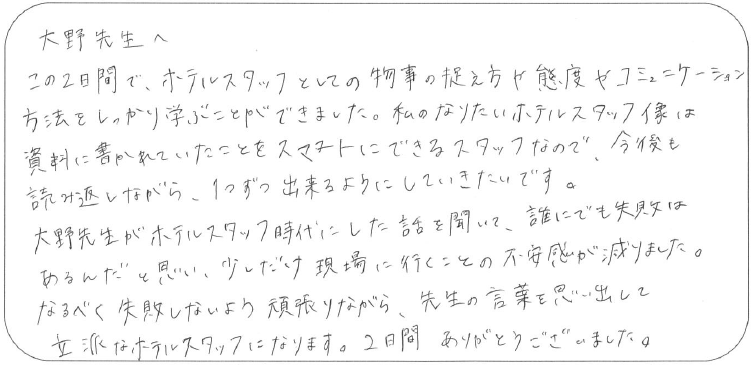 大野先生へ
この2日間で、ホテルスタッフとしての物事の捉え方や態度やコミュニケーション
方法をしっかり学ぶことができました。私のなりたいホテルスタッフ像は
資料に書かれていたことをスマートにできるスタッフなので、今後も
読み返しながら、1つずつ出来るようにしていきたいです。
大野先生がホテルスタッフ時代にした話を聞いて、誰にでも失敗は
あるんだと思い、少しだけ現場に行くことの不安感が減りました。
なるべく失敗しないよう頑張りながら、先生の言葉を思い出して
立派なホテルスタッフになります。2日間 ありがとうございました。